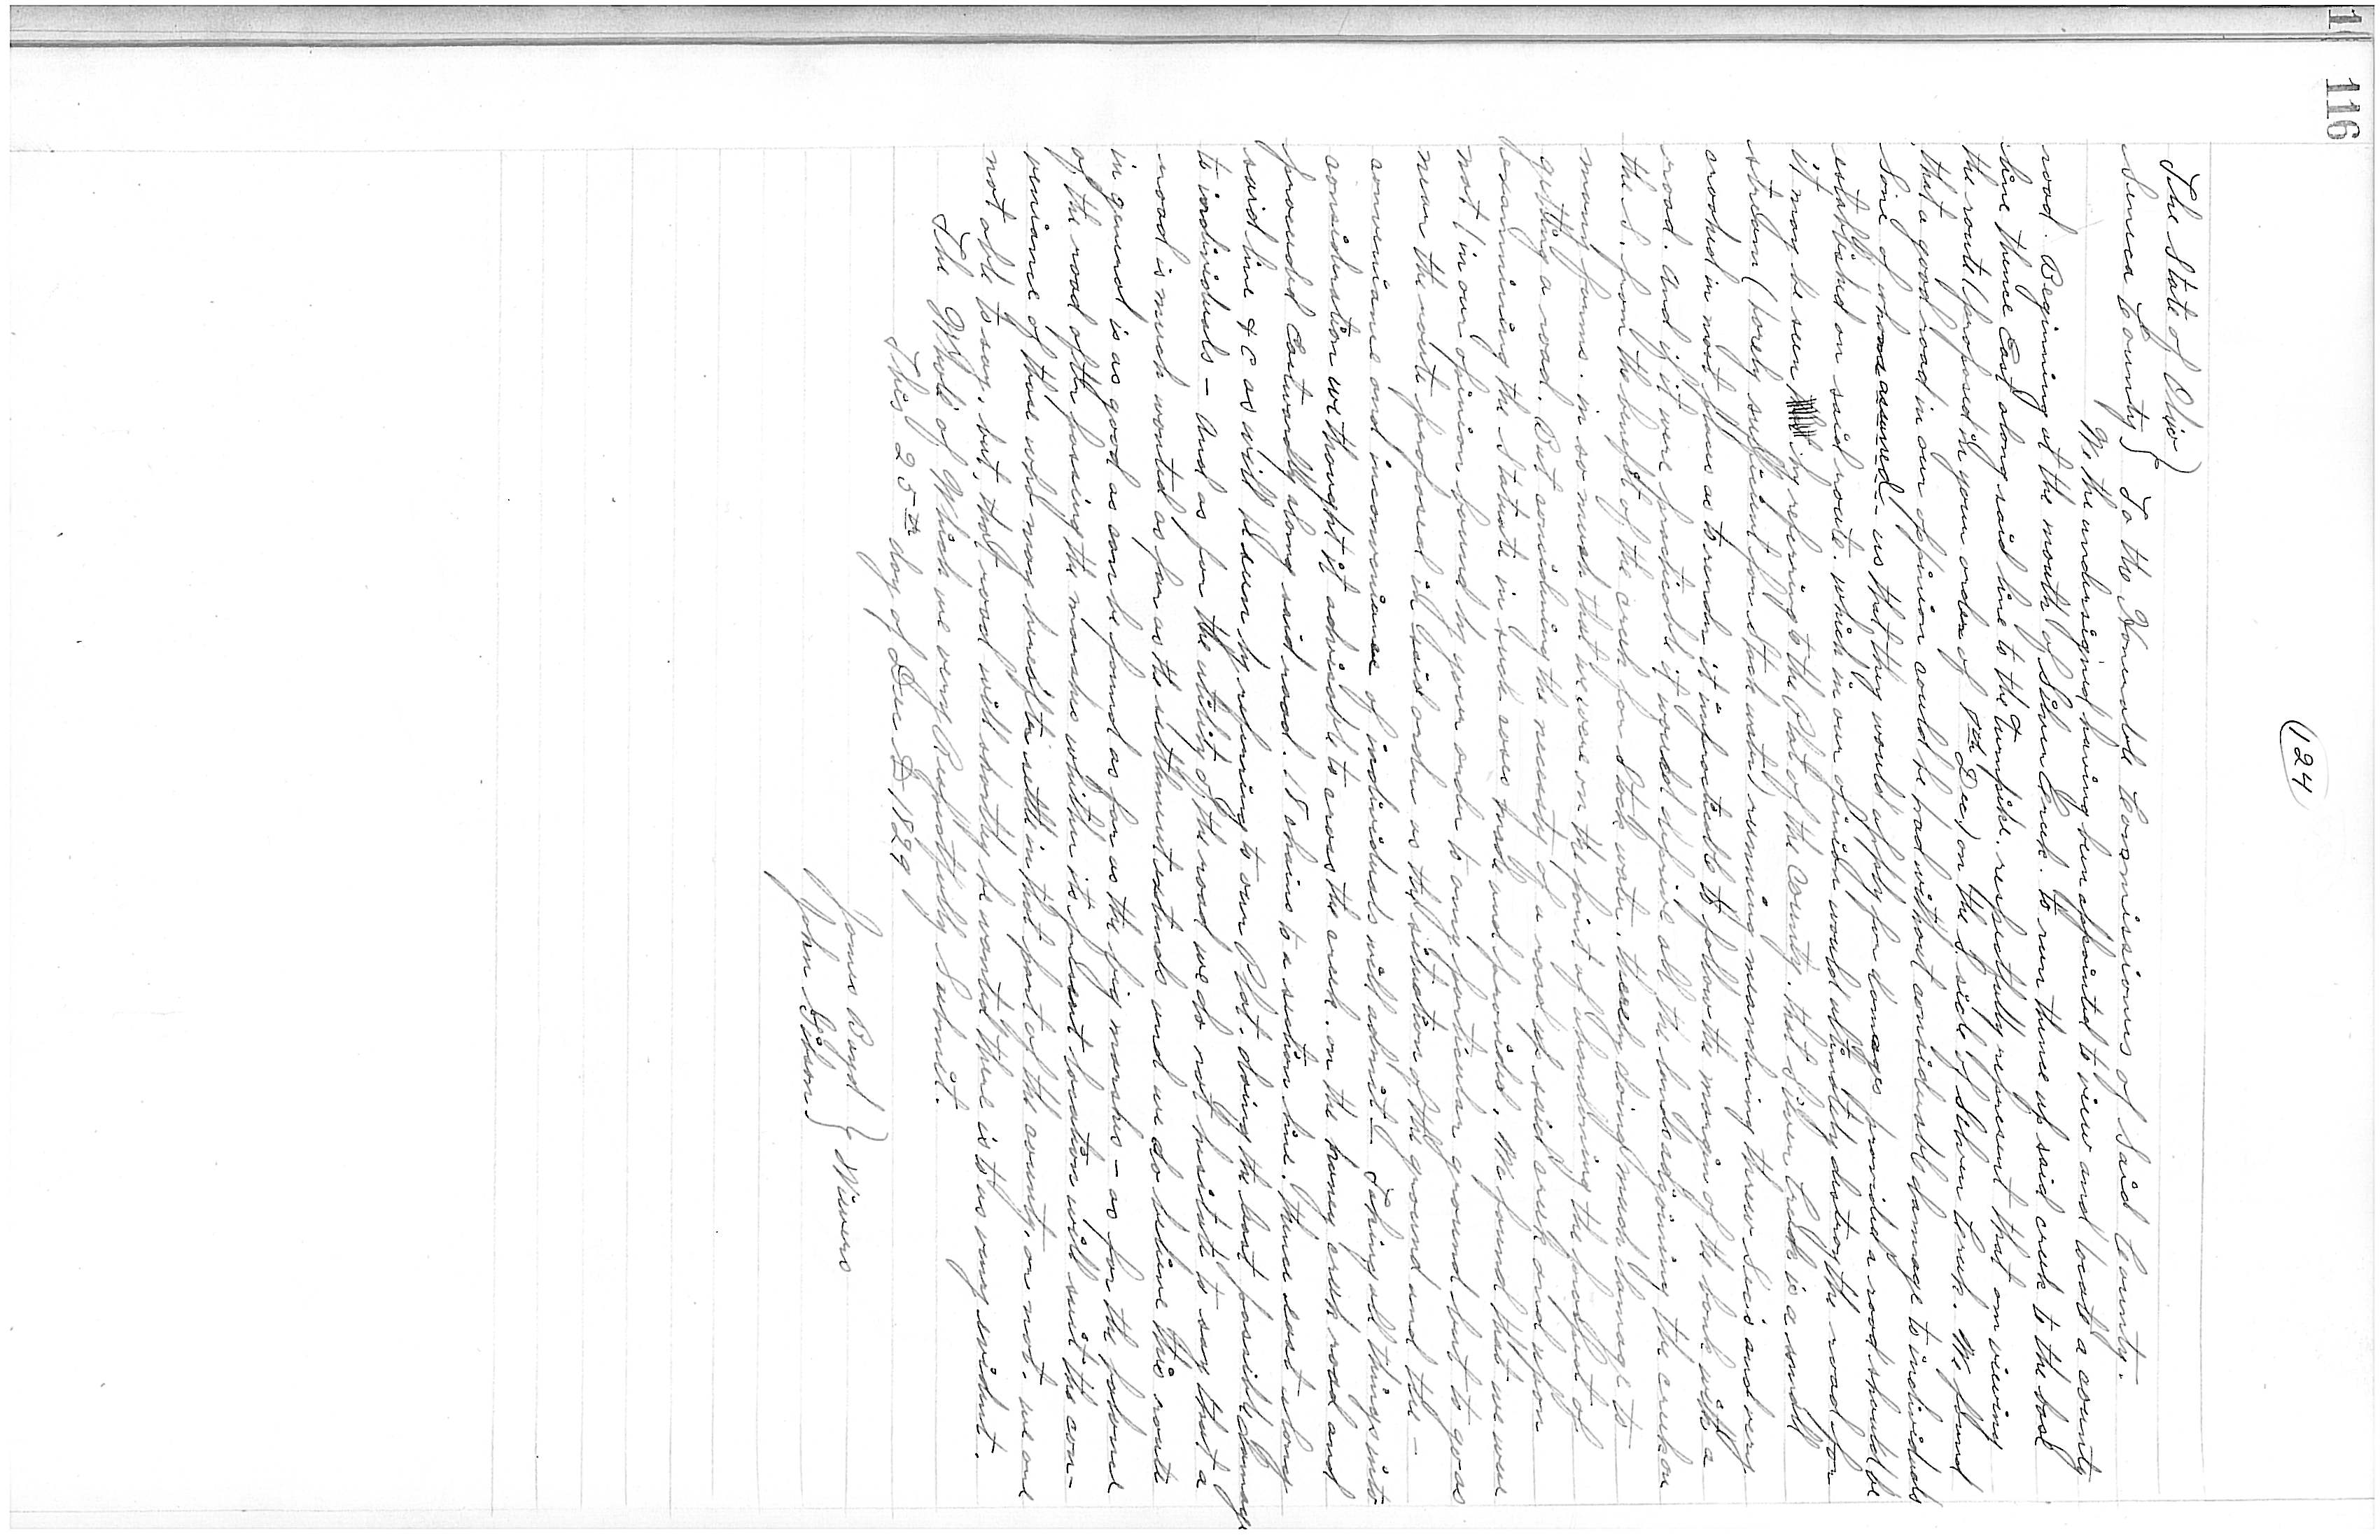 116
(124)
The State of Ohio }
Seneca County } To the Honorable Commissioners of Said County.
We the undersigned having been appointed to view and locate a county
road. Beginning at the mouth of Silver Creek. to run thence up said creek to the base
line thence East along said line to the turnpike. respectfully represent that on viewing
the route (proposed in your order of 8th Dec,) on the S. side of Silver Creek. We found
that a good road in our oppinion could be had without considerable damage to individuals
Some of whom assured us that they would apply for damages provided a road should be
established on said route. which in our opinion would ultimately destroy the road for
it may be seen by refering to the Plat of the County. that Silver Creek is a small
stream (barely sufficient for Stock water) running meandering threw Secs and very
crooked in most places as to render it impracticable to follow the margin of the bank with a
road. And if it were practicable it would deprive all the lands adjoining the creek on
the S. from the benefit of the creek for Stock water, thereby doing much damage to
many farms. in so much that we were on the point of abandoning the prospect of
getting a road. But considering the necessity of a road up said creek and upon
examining the Statute in such cases made and provided, We found that we were
not (in our opinion bound by your order to any particular ground but to go as
near the route proposed in said order as the situation of the ground and the -
convenience and inconvenience of individuals will admit - Taking all things into
consideration we thought it adviseable to cross the creek. on the honey creek road and
proceeded Eastwardly along said road. 18 chains to a section line. thence east along
said line & c as will be seen by refering to our Plat. doing the least possible damage
to individuals - And as for the utility of the road we do not hesitate to say that a
road is much wanted as far as the settlement extends and we do believe this route
in general is as good as can be found as far as the big marshes - as for the balance
of the road after passing the marshes whither its present location will suit the con-
veniance of those who may hereafter settle in that part of the county, or not. we are
not able to say, but, that road will shortly be wanted there is to us very evident.
The Whole of Which we very Respectfully Submit.
This 25th day of Dec D 1829
James Boyd }
John Gibson } Viewers